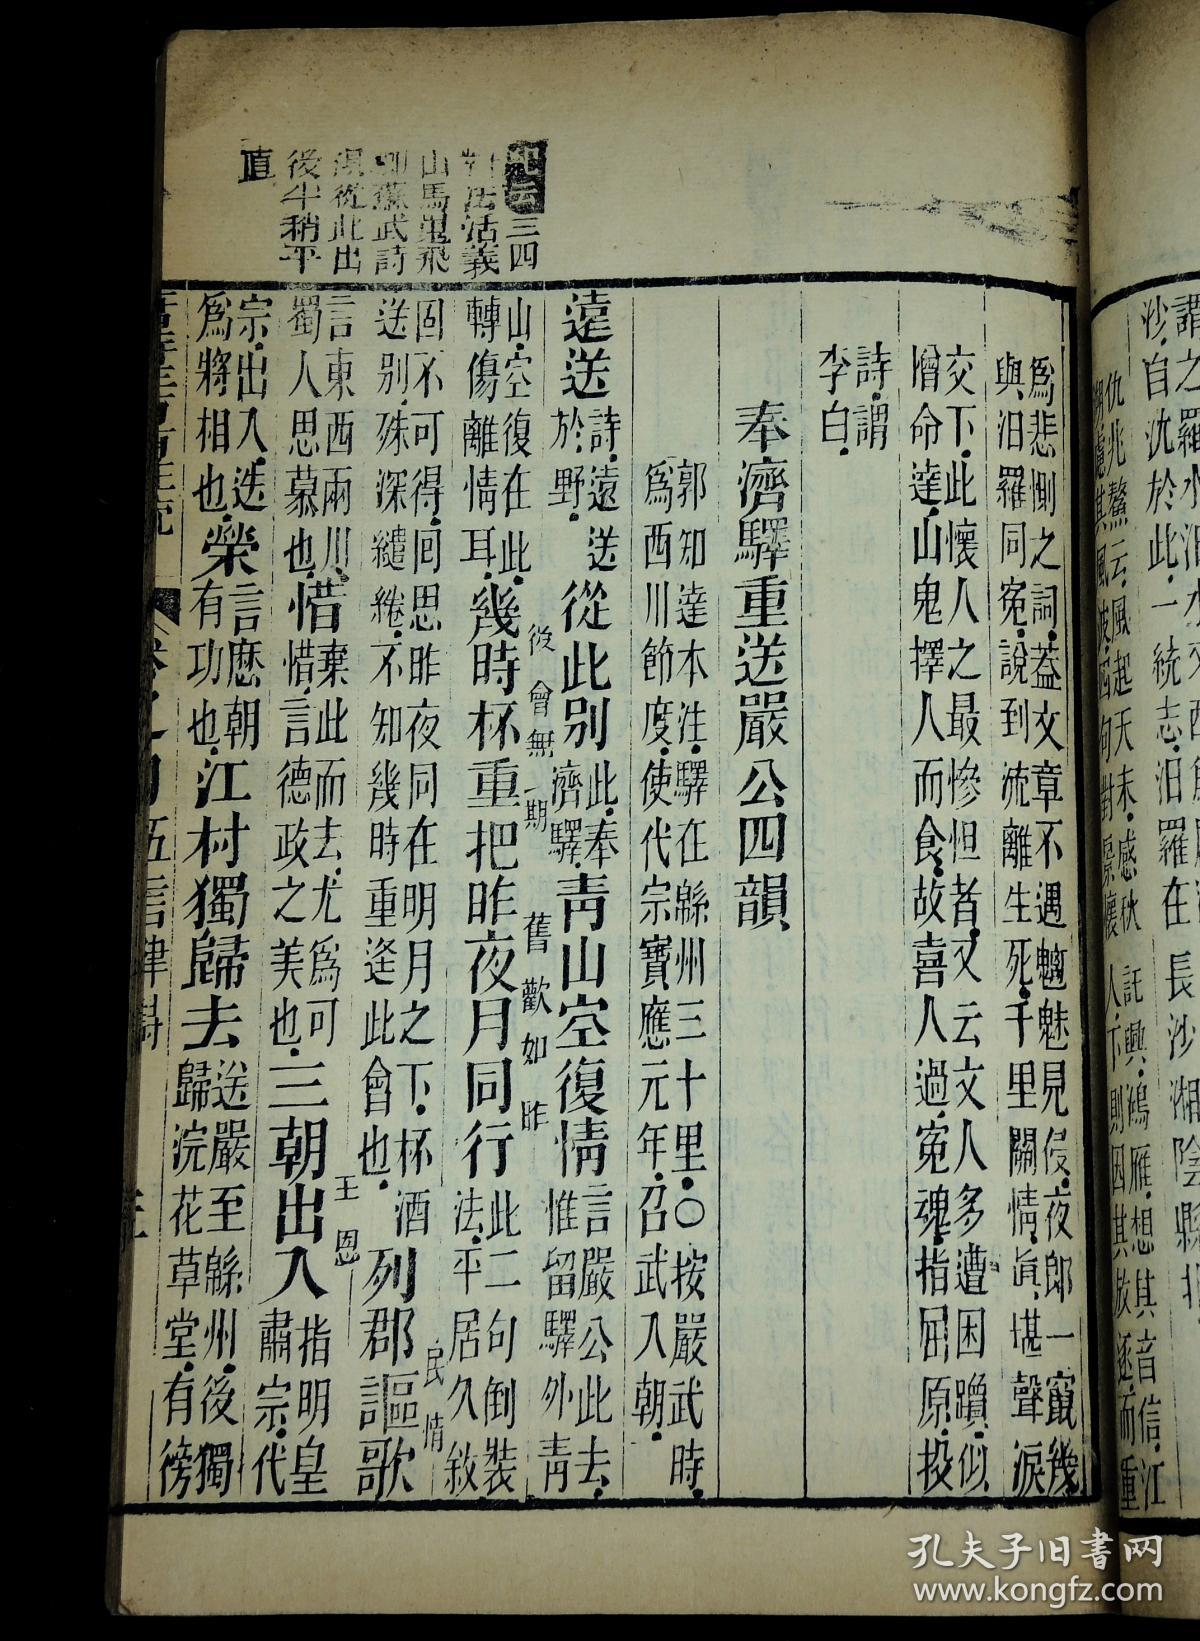 謂之羅水汨水又西爲
沙自沈於此一統志汨羅在長沙湘陰縣北
仇兆鰲云風起天末感秋託興鴻雁想其音信江
湖慮其風波四句對景懷人下則因其放逐而重
爲悲惻之詞蓋文章不遇魑魅見侵夜郎一竄幾
與汨羅同寃說到流離生死千里關情眞堪聲淚
交下此懷人之最慘怛者又云文人多遭困躓似
憎命達山鬼擇人而食故喜人過寃魂指屈原投
詩謂
李白
奉濟驛重送嚴公四韻
郭知達本注驛在緜州三十里〇按嚴武時
爲西川節度使代宗寶應元年召武入朝
遠送
詩遠送
於野
從此別
此奉
濟驛
青山空復情
言嚴公此去
惟留驛外青
山空復在此
轉傷離情耳
幾時杯重把昨夜月同行
此二句倒裝
法平居久敘
後會無期
舊歡如昨
固不可得回思昨夜同在明月之下杯酒
送別殊深繾綣不知幾時重逢此會也
列郡謳歌
民情
言東西兩川
蜀人思慕也
惜
棄此而去尤爲可
惜言德政之美也
三朝出入
指明皇
肅宗代
王恩
宗出入迭
爲將相也
榮
言歷朝
有功也
江村獨歸去
送嚴至緜州後獨
歸浣花草堂有徬
五言律詩
紀云三四
對法活義
山馬嵬飛
卿蘇武詩
俱從此出
後半稍平
直
孔夫子旧书网
www.kongfz.com